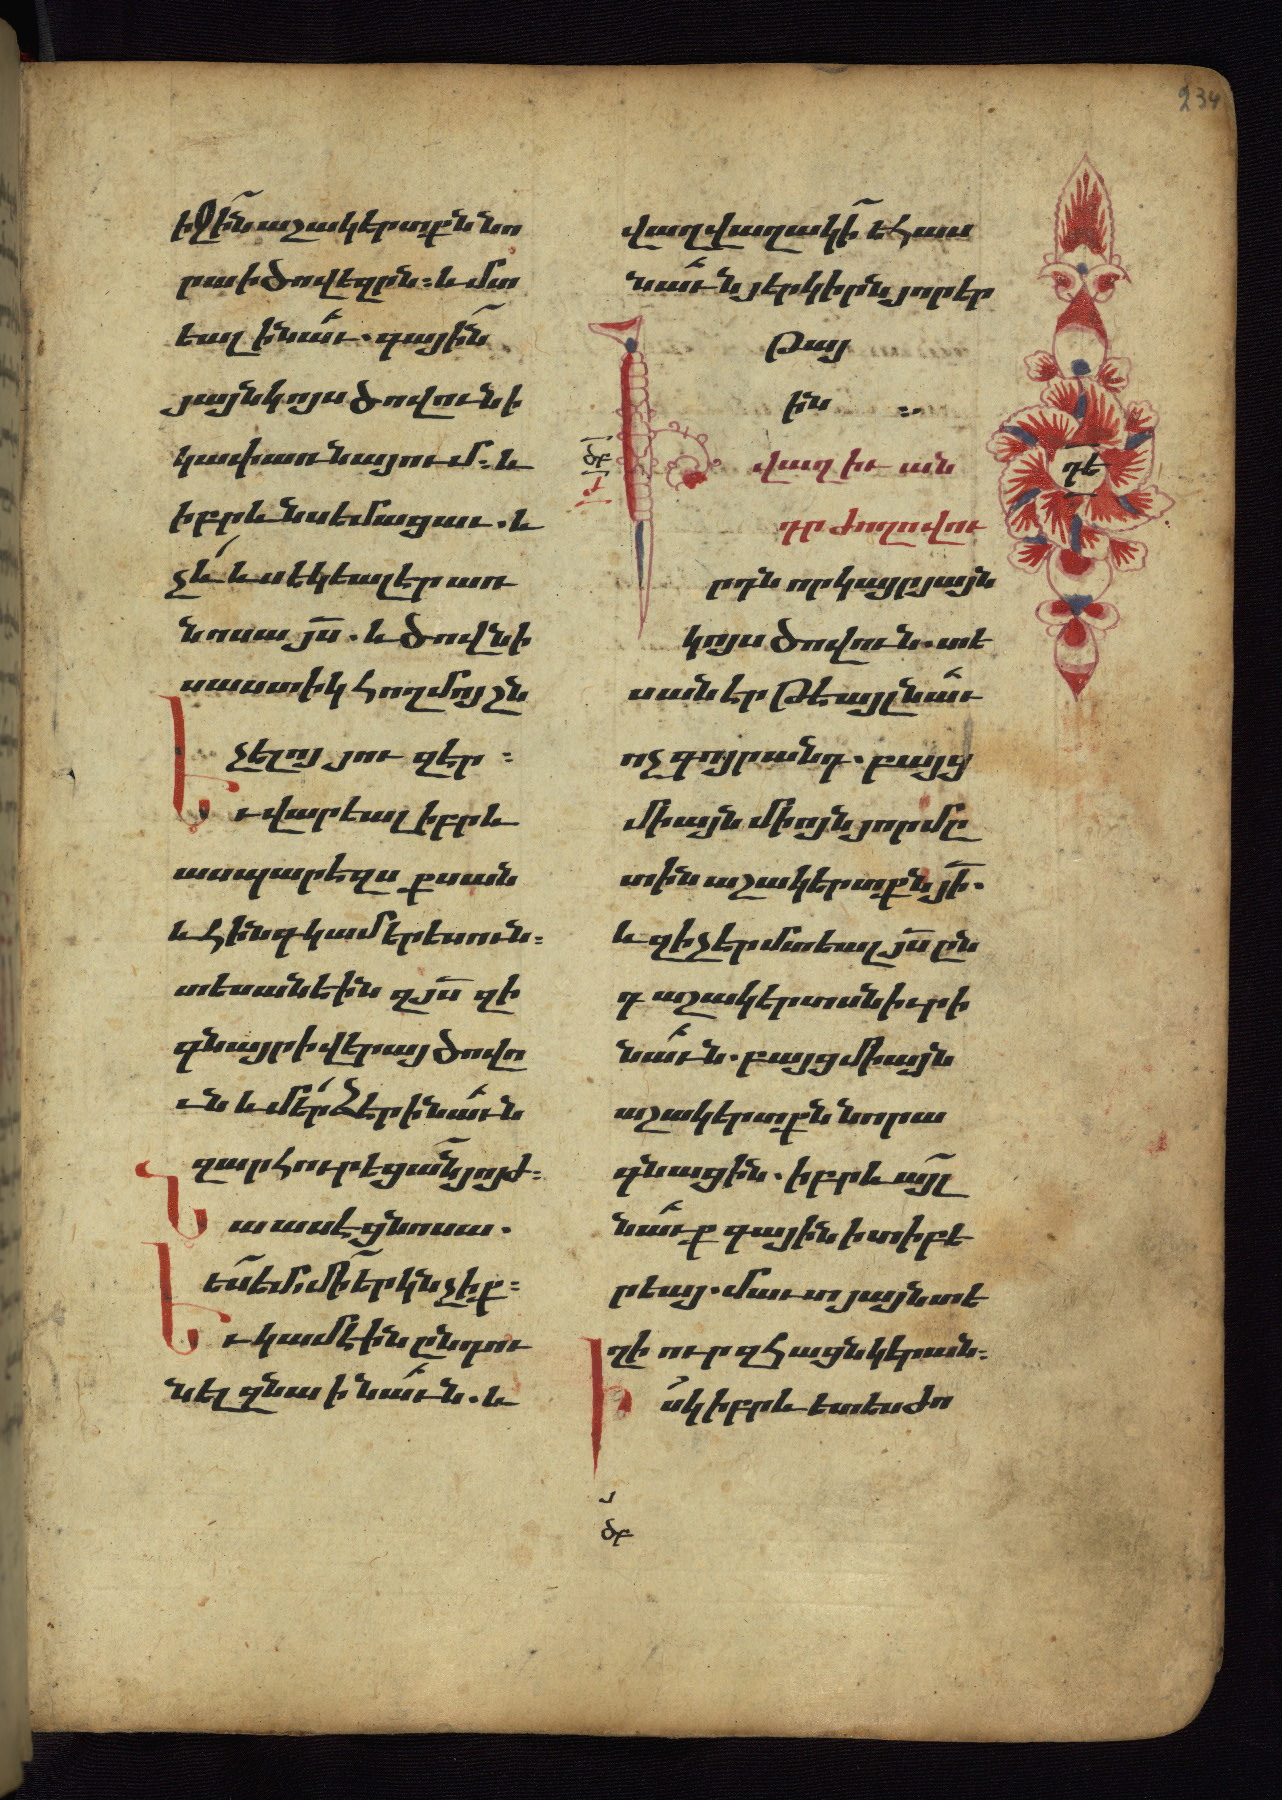 234
իջին աշակերտքն նո
րա ի ծովեզրն։ և մտ
եալ ի նաւ. գային
յայնկոյս ծովուն ի
կափառնայում։ և
իբրև նսեմացաւ. և
չև ևս էկեալ էր առ
նոսա յս. և ծովն ի
սաստիկ հողմոյ շն
չելոյ յուզէր։
Եւ վարեալ իբրև
ասպարէզս քսան
և հինգ կամ երեսուն։
տեսանեին զյս զի
գնայր ի վերայ ծովո
ւն և մերձ էր ի նաւն
զարհուրեցան յոյժ։
Նա ասէ ցնոսա.
ես եմ մի երկնչիք։
Եւ կամէին ընդու
նել զնա ի նաւն. և
վաղվաղակի եհաս
նաւն յերկիրն յոր եր
թայ
ին ։.
դե
ծբ
Ի վաղիւ ան
դր ժողովու
րդն որ կայր յայն
կոյս ծովուն. տե
սանէր թե այլ նաւ
ոչ գոյր անդ. բայց
միայն միոյն յոր մը
տին աշակերտքն յի.
և զի չէր մտեալ յս ըն
դ աշակերտսն իւր ի
նաւն. բայց միայն
աշակերտքն նորա
գնացին. իբրև այլ
նաւք գային ի տիբե
րեայ. մաւտ յայն տե
ղի ուր զհացն կերան։
Իսկ իբրև ետես ժո
ծբ